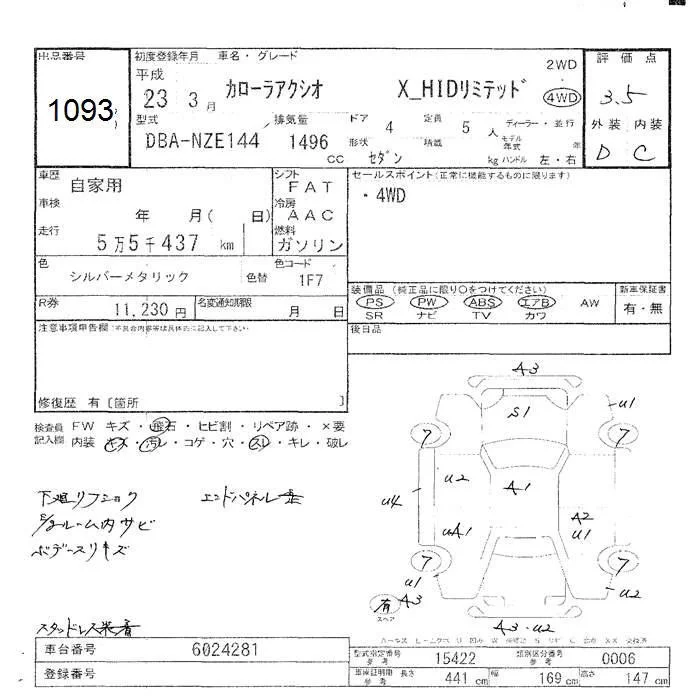 出品番号
1093
初度登録年月 車名・グレード
平成 23 3月 カローラアクシオ X_HIDリミテッド
2WD
4WD
型式 排気量 ドア 4 定員 5人 ディーラー・並行
DBA-NZE144 1496 CC 形状 セダン 積載 kg モデル年式 年 ハンドル 左・右
評価点
3.5
外装 内装
D C
車歴 自家用
車検 年 月( 日)
走行 5万5千437 km
シフト FAT
冷房 AAC
燃料 ガソリン
色 シルバーメタリック 色替
色コード 1F7
R券 11,230円 名変通知期限 月 日
セールスポイント(正常に機能するものに限ります)
・4WD
装備品 (純正品に限り○をつけてください)
PS PW ABS エアB AW
SR ナビ TV カワ
新車保証書
有・無
後日品
注意事項申告欄(不具合内容等は具体的に記入して下さい)
修復歴 有〔箇所 〕
検査員記入欄 FW キズ・飛石・ヒビ割・リペア跡・×要
内装 キズ・汚レ・コゲ・穴・スレ・キレ・破レ
下廻リフショク
ルーム内サビ
ボデースリキズ
スタッドレス装着
A3
S1
U1
7
7
U2
A1
U4
UA1
A2
U1
7
7
U1
A3
U2
有
スペア
A3・U2
車台番号 6024281
登録番号
型式指定番号 参考 15422 類別区分番号 参考 0006
車庫証明用 参考 長さ 441 cm 幅 169 cm 高さ 147 cm